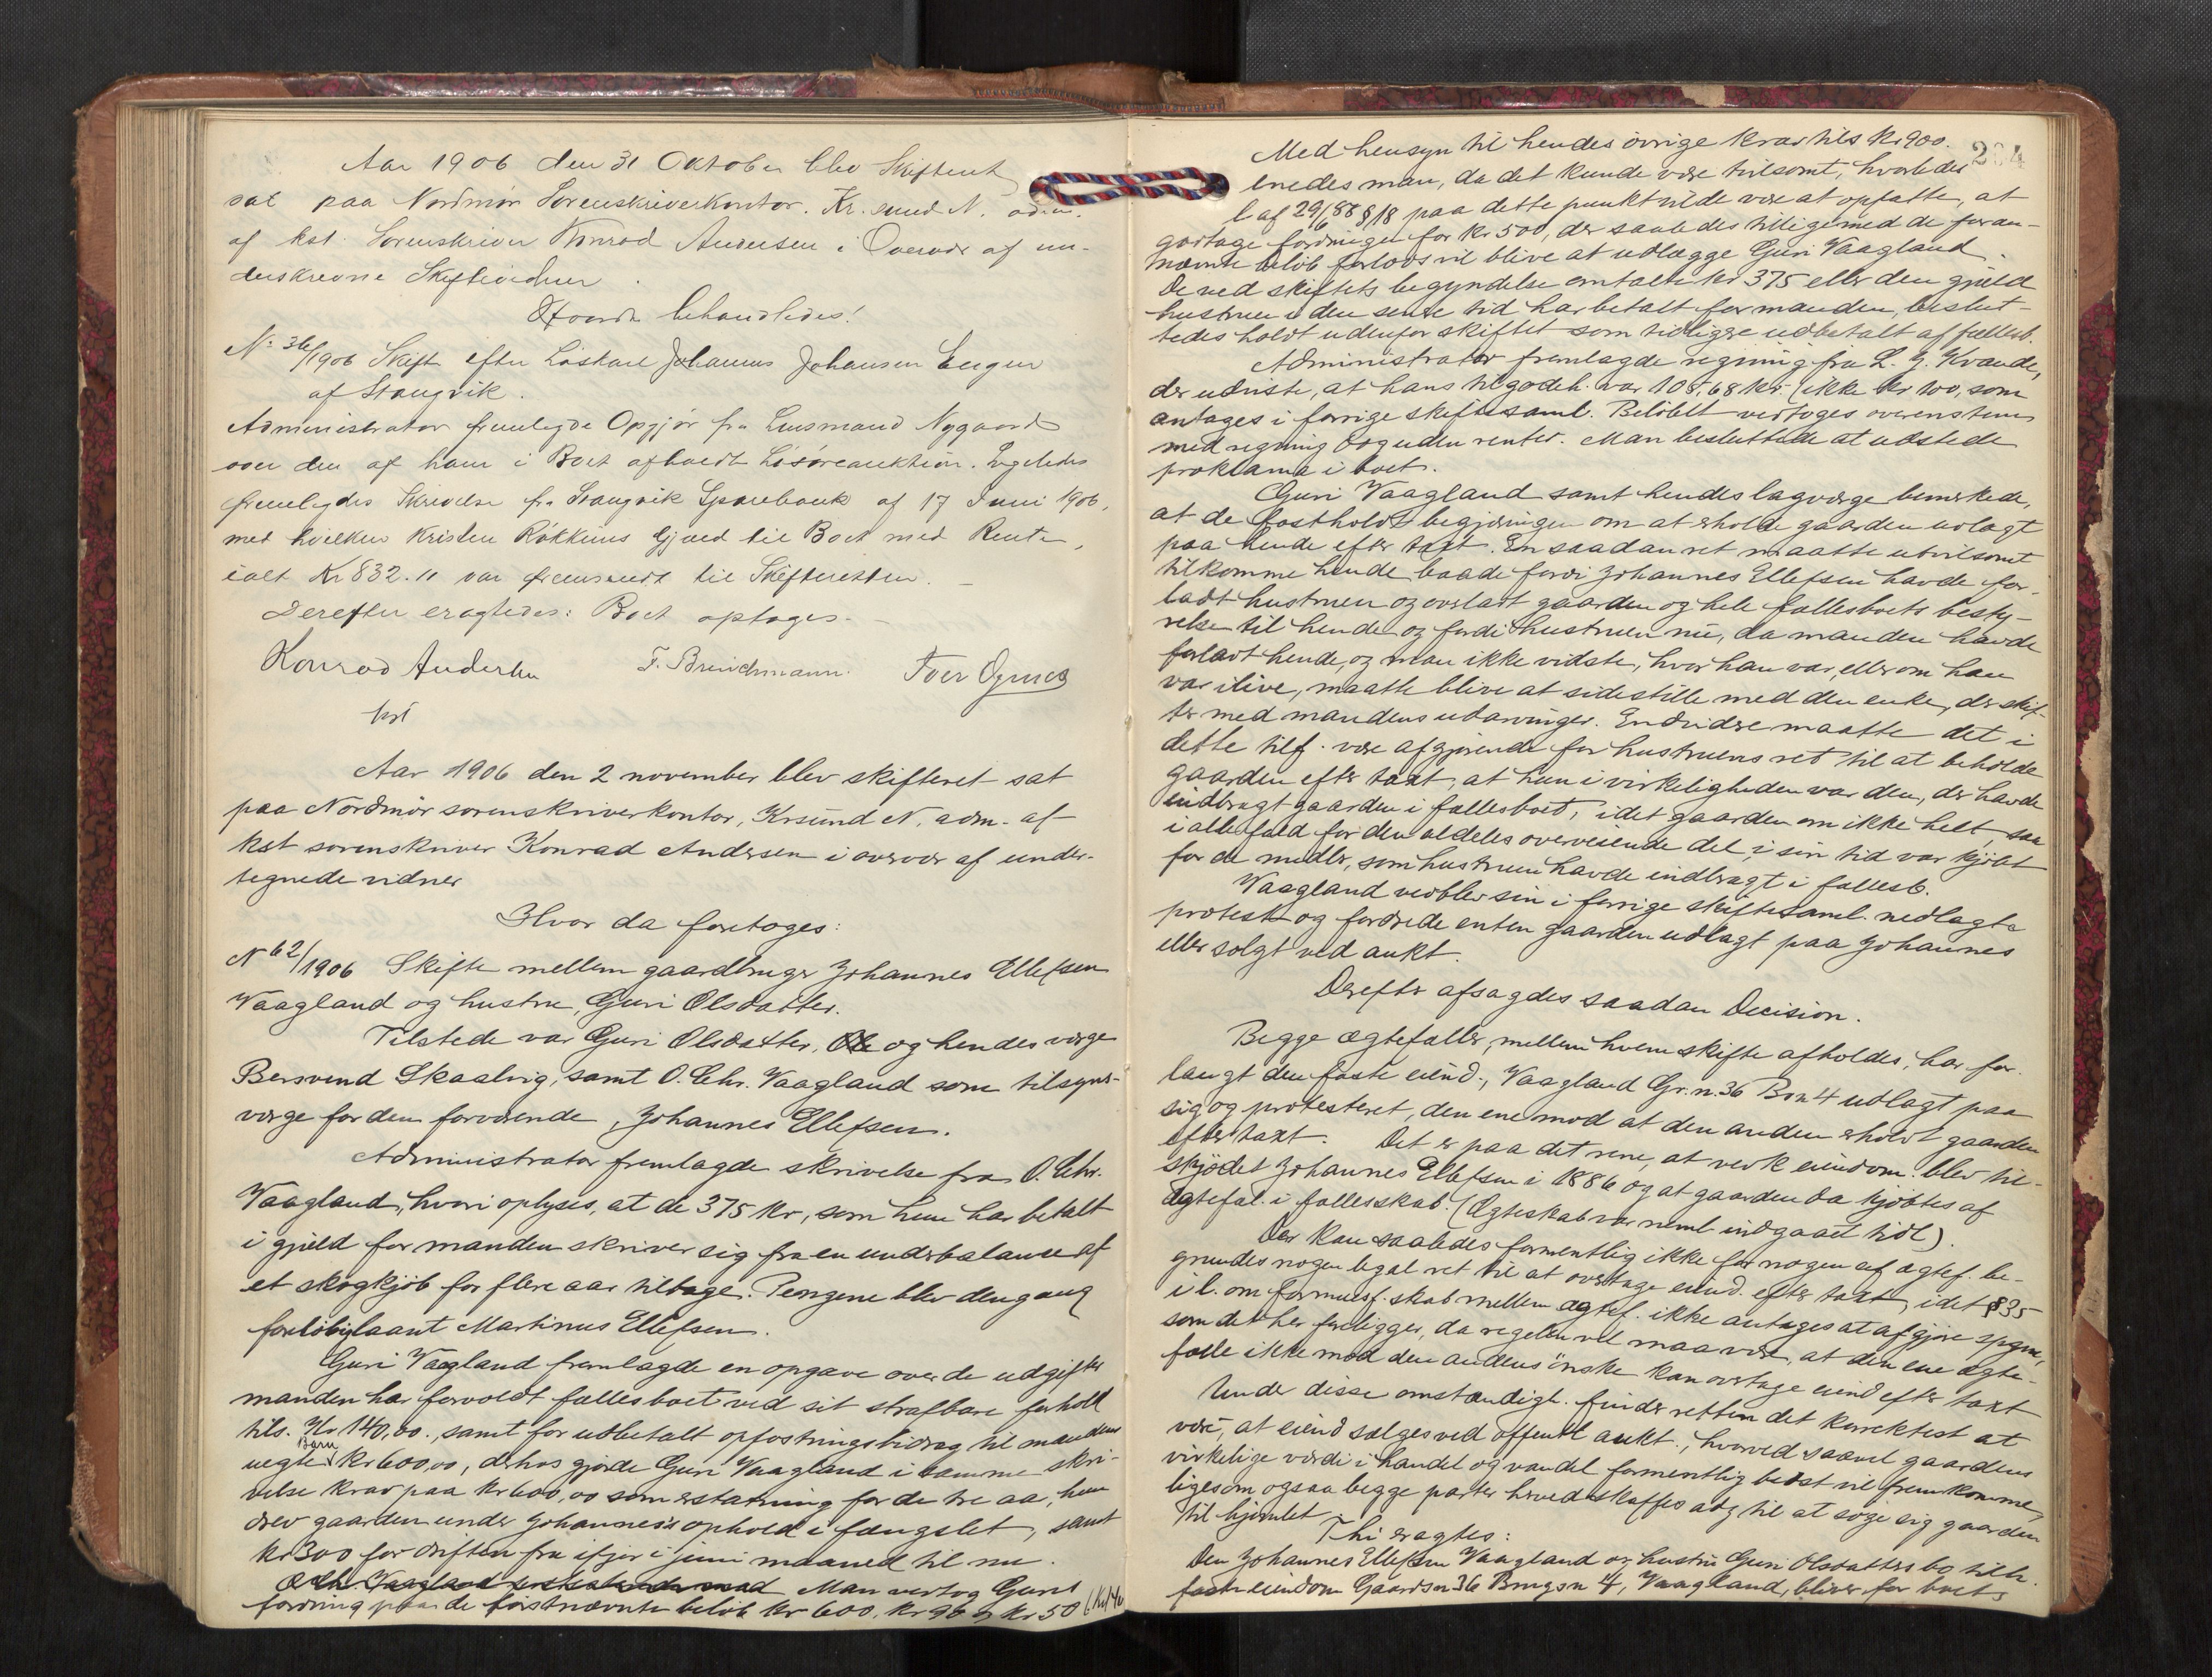 Aar 1906 den 31 Oktober blev Skifteret
sat paa Nordmør Sorenskriverkontor. Kr.sund N. adm.
af kst. Sorenskriver Konrad Andersen i Overvær af un-
derskrevne Skiftevidner.
Hvorda behandledes:
No 36/1906 Skifte efter Løskarl Johannes Johansen Enger
af Stangvik.
Administrator fremlagde Opgjør fra Lensmand Nygaard
over den af ham i Boet afholdt Løsøreauktion. Ligeledes
fremlagdes Skrivelse fra Stangvik Sparebank af 17 Juni 1906,
med hvilken Kristen Røkkums Gjæld til Boet med Rente,
ialt Kr 832.11 var fremsendt til Skifteretten. –
Derefter eragtedes: Boet optages. –
Konrad Andersen F. Breichmann. Iver Ognæs
kst
Aar 1906 den 2 november blev skifteret sat
paa Nordmør sorenskriverkontor, Krsund N, adm. af
kst sorenskriver Konrad Andersen i overvær af under-
tegnede vidner
Hvor da foretoges:
N 62/1906 Skifte mellem gaardbruger Johannes Ellefsen
Vaagland og hustru, Guri Olsdatter.
Tilstede var Guri Olsdatter, Ole og hendes værge
Bersvend Skaalvig, samt O. Chr. Vaagland som tilsyns-
værge for den forværende, Johannes Ellefsen.
Administrator fremlagde skrivelse fra O. Chr.
Vaagland, hvori oplyses, at de 375 kr, som hun har betalt
i gjæld for manden skriver sig fra en underbalance af
et skogkjøb for flere aar tilbage. Pengene blev dengang
foreløbig laant Martinus Ellefsen.
Guri Vaagland fremlagde en opgave over de udgifter
manden har forvoldt fællesboet ved sit strafbare forhold
tils. Kr 140,00., samt for udbetalt opfostringsbidrag til mandens
uegte Barn kr 600,00, derhos gjorde Guri Vaagland i samme skri-
velse krav paa kr 600,00 som erstatning for de tre aar, hun
drev gaarden under Johannes's ophold i fængslet, samt
kr 300 for driften fra ifjor i juni maaned til nu.
O Chr Vaagland protesterede mod Man vedtog Guris
fordring paa de førstnævnte beløb kr 600, kr 90 og kr 50 (Kr 140
204
Med hensyn til hendes øvrige krav tils kr 900.
enedes man, da det kunde være tvilsomt, hvorledes
l af 29/6 88 § 18 paa dette punkt vilde være at opfatte, at
godtage fordringen for kr 500, der saaledes tilligemed de foran-
nævnte beløb forlods vil blive at udlægge Guri Vaagland.
De ved skiftets begyndelse omtalte kr 375 eller den gjæld
hustruen i den senere tid har betalt for manden, beslut-
tedes holdt udenfor skiftet som tidligere udbetalt af fællesb.
Administrator fremlagde regning fra L. J. Kvande,
der udviste, at hans tilgodeh. var 108,68 kr. (ikke kr 100, som
antages i forrige skiftesaml. Beløbet vedtoges overenstem
med regning og uden renter. Man besluttede at udstede
proklama i boet.
Guri Vaagland samt hendes lagværge bemærkede,
at de fastholdt begjæringen om at erholde gaarden udlagt
paa hende efter taxt. En saadan ret maatte utvilsomt
tilkomme hende, baade fordi Johannes Ellefsen havde for-
ladt hustruen og overladt gaarden og hele fællesboets besty-
relse til hende og fordi hustruen nu, da manden havde
forladt hende, og man ikke vidste, hvor han var, eller om han
var ilive, maatte blive at sidestille med den enke, der skif-
ter med mandens utarvinger. Endvidere maatte det i
dette tilf. være afgjørende for hustruens ret til at beholde
gaarden efter taxt, at hun i virkeligheden var den, der havde
indbragt gaarden i fællesboet, idet gaarden om ikke helt, saa
ialfald for den aldeles overveiende del, i sin tid var kjøbt
for de midler, som hustruen havde indbragt i fællesb.
Vaagland vedblev sin i forrige skiftesaml. nedlagte
protest og fordrede enten gaarden udlagt paa Johannes
eller solgt ved aukt.
Derefter afsagdes saadan Decision.
Begge ægtefæller, mellem hvem skifte afholdes, har for-
langt den faste eiend., Vaagland Gr.n. 36 Brn 4 udlagt paa
sig og protesteret, den ene mod at den anden erholdt gaarden
efter taxt. Det er paa det rene, at vedk eiendom blev til-
skjødet Johannes Ellefsen i 1886 og at gaarden da kjøbtes af
ægtefæl. i fællesskab. (Ægteskab var neml indgaaet tidl).
Der kan saaledes formentlig ikke for nogen af ægtef. be-
grundes nogen legal ret til at overtage eiend. efter taxt, idet § 35
i l. om formuesf.skab mellem ægtef. ikke antages at afgjøre spgm,
som det her foreligger, da regelen vel maa være, at den ene ægte-
fælle ikke mod den andens ønske kan overtage eiend efter taxt
Under disse omstændigh. finder retten det korrektest at
være, at eiend sælges ved offentl aukt., hvorved saavel gaardens
virkelige værdi i handel og vandel formentlig bedst vil fremkomme,
ligesom ogsaa begge parter herved skaffes adg til at søge sig gaarden
til hjemlet.
Thi eragtes:
Den Johannes Ellefsen Vaagland og hustru Guri Olsdatters bo tilh.
faste eiendom Gaardsn 36 Brugsn 4, Vaagland, bliver for boets